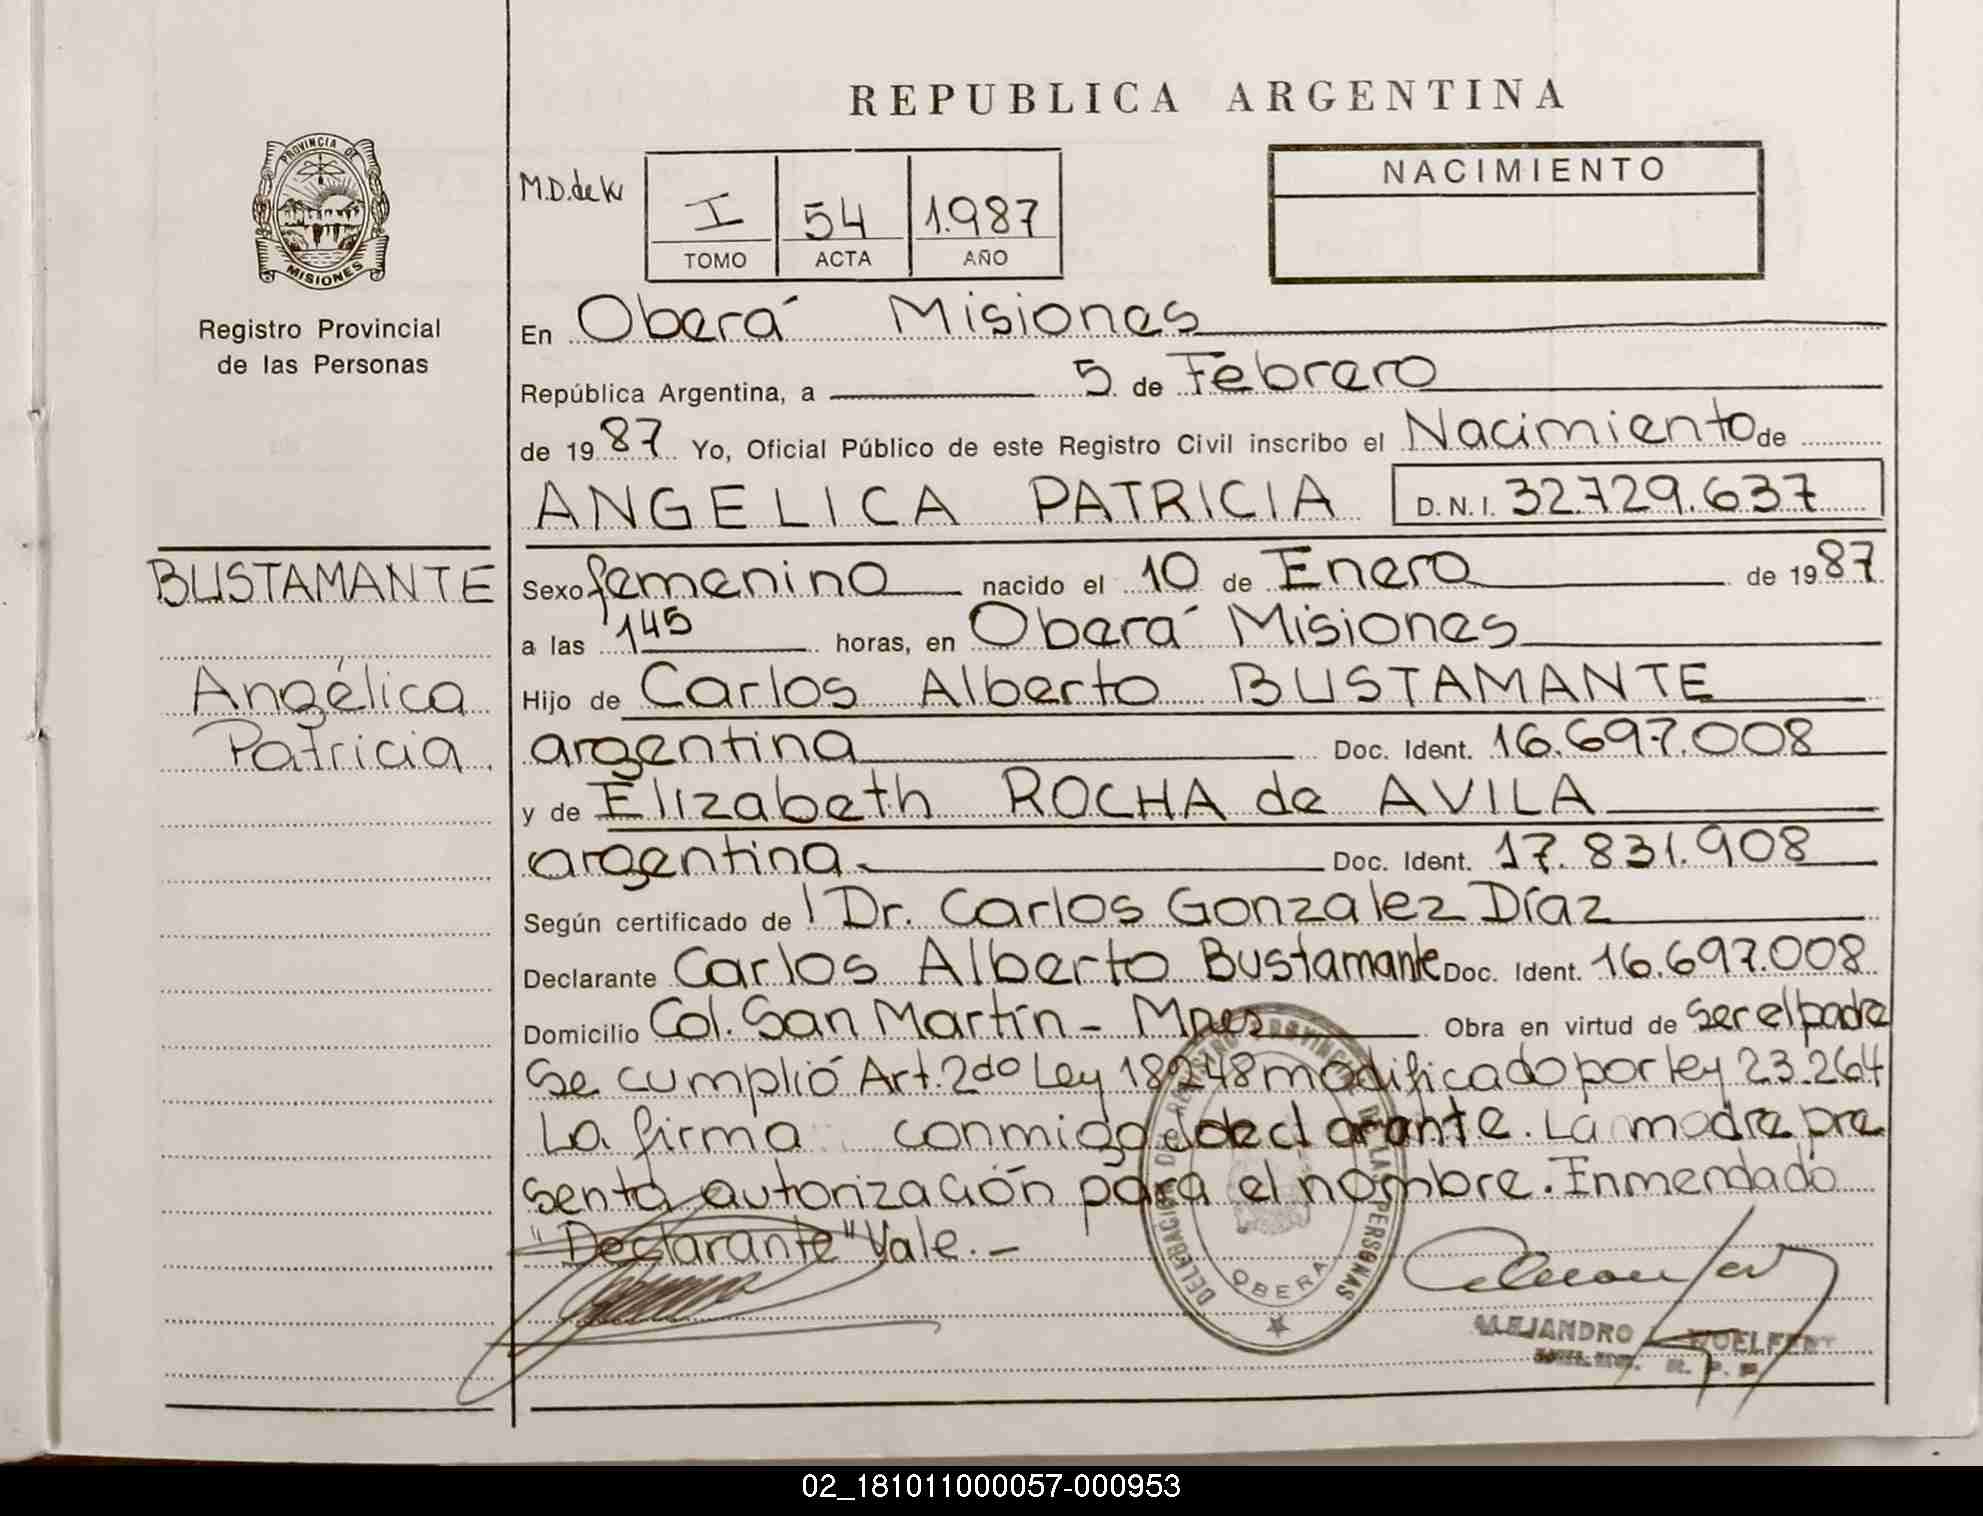 REPUBLICA ARGENTINA
PROVINCIA DE
MISIONES
Registro Provincial
de las Personas
M.D.de K
I 54 1.987
TOMO ACTA AÑO
NACIMIENTO
En Oberá Misiones
República Argentina, a 5 de Febrero
de 1987 Yo, Oficial Público de este Registro Civil inscribo el Nacimiento de
ANGELICA PATRICIA D.N.I. 32.729.637
BUSTAMANTE
Angélica
Patricia
Sexo femenino nacido el 10 de Enero de 1987
a las 145 horas, en Oberá Misiones
Hijo de Carlos Alberto BUSTAMANTE
argentina Doc. Ident. 16.697.008
y de Elizabeth ROCHA de AVILA
argentina Doc. Ident. 17.831.908
Según certificado de Dr. Carlos Gonzalez Díaz
Declarante Carlos Alberto Bustamante Doc. Ident. 16.697.008
Domicilio Col. San Martín - Mnes Obra en virtud de ser el padre
Se cumplió Art. 2do Ley 18248 modificado por ley 23.264
La firma conmigo el declarante. La madre pre
senta autorización para el nombre. Enmendado
"Declarante" Vale.-
DELEGACION DE REGISTRO PROVINCIAL DE LAS PERSONAS
OBERA
ALEJANDRO WOELFERT
R. P. P.
02_181011000057-000953